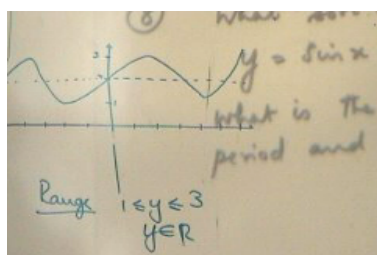 8 What
3
y = Sin x
1
what is the
period and
Range 1 ≤ y ≤ 3
y ∈ R